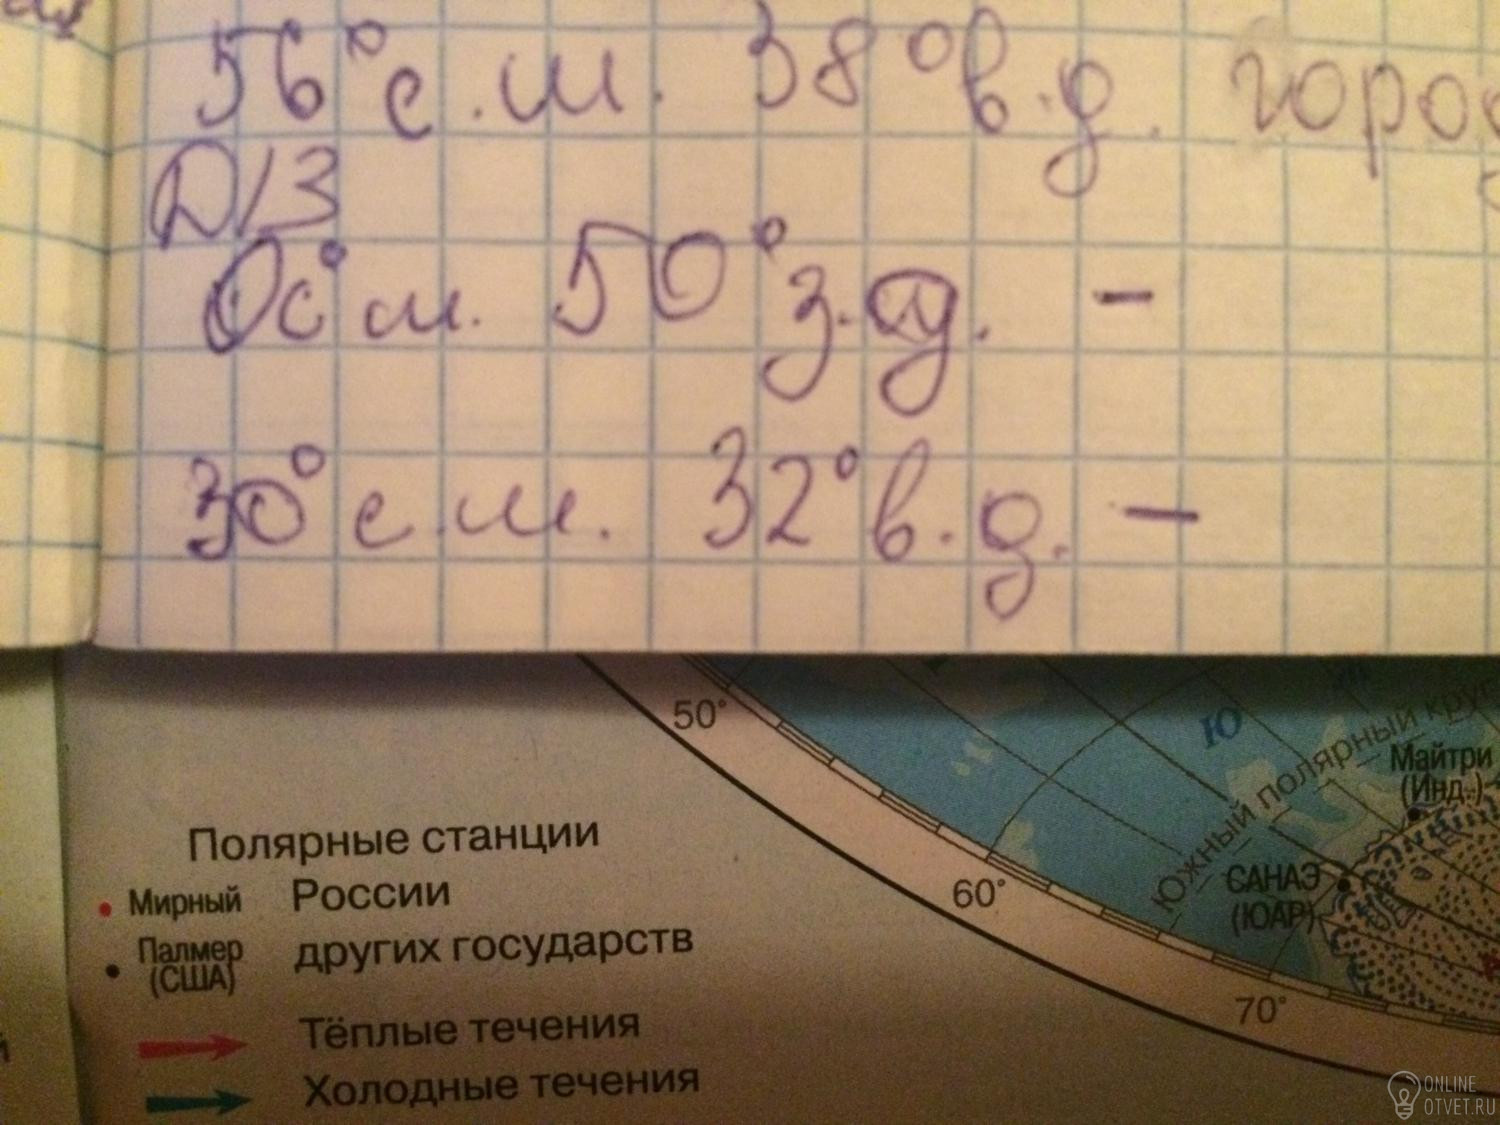 56° с.ш. 38° в.д. город
Д/З
0с° ш. 50° з.д. –
30° с.ш. 32° в.д. –
50°
Ю
Южный полярный круг
Майтри
(Инд.)
60°
САНАЭ
(ЮАР)
70°
Полярные станции
Мирный России
Палмер
(США) других государств
Тёплые течения
Холодные течения
ONLINE
OTVET.RU